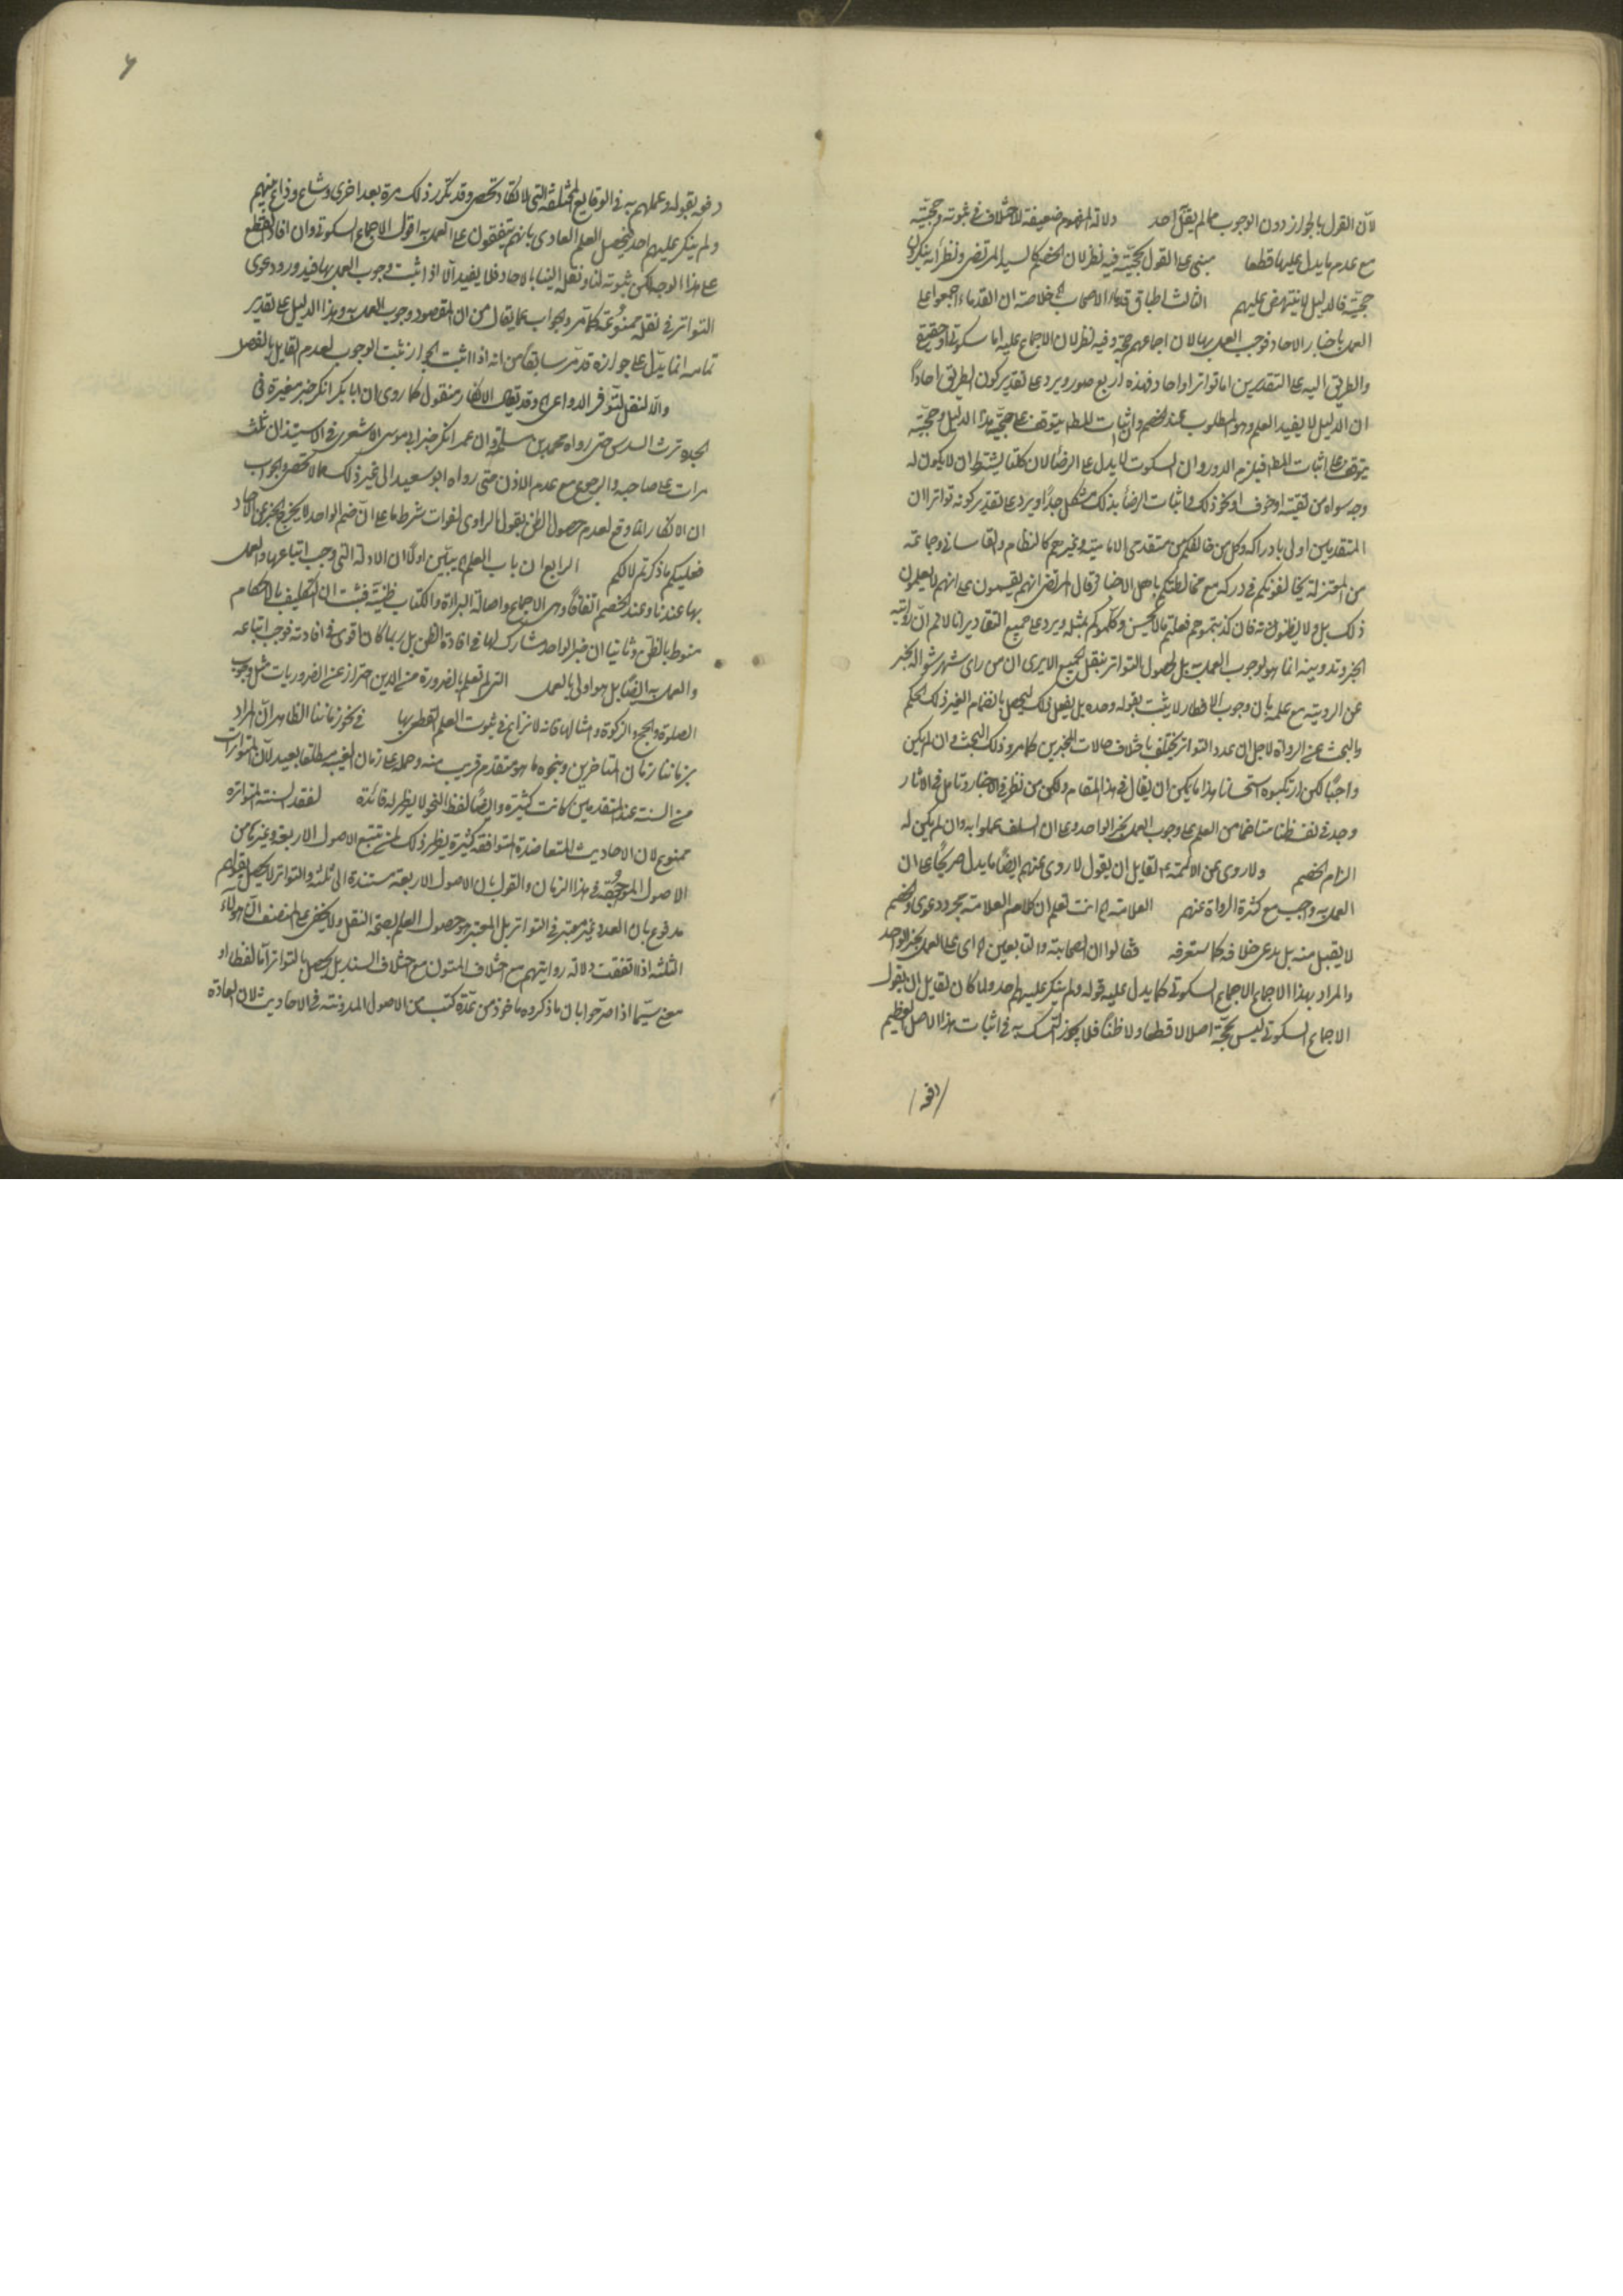 لان القول بالجواز دون الوجوب مما لم يقل احد دلالة المفهوم ضعيفة للاختلاف في ثبوته وحجيته
مع عدم ما يدل عليها قطعا مبنى على القول بحجيته فيه نظر لان الخصم كالسيد المرتضى ونظرائه ينكرون
حجيته فالدليل لا ينتهض عليهم الثالث اطباق قدماء الاصحاب خلاصته ان القدماء اجمعوا على
العمل باخبار الاحاد فوجب العمل بها لان اجماعهم حجة وفيه نظر لان الاجماع عليه اما سكوتي او حقيقي
والطريق اليه على التقديرين اما تواتر او احاد فهذه اربع صور ويرد على تقدير كون الطريق احادا
ان الدليل لا يفيد العلم وهو المطلوب عند الخصم وان اثبات المط يتوقف على حجية هذا الدليل وحجيته
يتوقف على اثبات المط فيلزم الدور وان السكوت لا يدل على الرضا لان كلتا يشترط ان لا يكون له
وجه سواه من تقية او خوف او نحو ذلك واثبات الرضا بذلك مشكل جدا ويرد على تقدير كونه تواترا ان
المتقدمين اولى بادراكه وكل من خالفكم من متقدمي الامامية وغيرهم كالنظام والقاساني وجماعة
من المعتزلة يخالفونكم في دركه مع مخالطتكم باهل الاخبار قال المرتضى انهم يقسمون على انهم لا يعلمون
ذلك بل ولا يظنونه فان كذبتموهم فعلتم ما لا يحسن وكلموكم بمثله ويرد على جميع التقادير انا لا نم ان رواية
الخبر وتدوينه انما هو لوجوب العمل به بل لحصول التواتر بنقل الجميع الا يرى ان من راى شهر شوال يخبر
عن الروية مع علمه بان وجوب الافطار لا يثبت بقوله وحده بل يفعل ذلك ليحصل بانضمام الغير ذلك الحكم
والبحث عن الرواة لاجل ان عدد التواتر يختلف باختلاف حالات المخبرين كما مر وذلك البحث وان لم يكن
واجبا لكن ارتكبوه استحسانا هذا ما يمكن ان يقال في هذا المقام ولكن من نظر في الاخبار وتامل في الاثار
وجد في نفسه ظنا متاخما من العلم على وجوب العمل بخبر الواحد وعلى ان السلف عملوا به وان لم يكن له
الزام الخصم ولا روى عن الائمة لقايل ان يقول لا روى عنهم ايضا ما يدل صريحا على ان
العمل به واجب مع كثرة الرواة عنهم العلامة انت تعلم ان كلام العلامة مجرد دعوى والخصم
لا يقبل منه بل يدعي خلافه كما ستعرفه فقالوا ان الصحابة والتابعين اى على العمل بخبر الواحد
والمراد بهذا الاجماع الاجماع السكوتي كما يدل عليه قوله ولم ينكر عليهم احد ولما كان لقايل ان يقول
الاجماع السكوتي ليس بحجة اصلا لا قطعا ولا ظنا فلا يجوز التمسك به في اثبات هذا الاصل العظيم
دفعه
٦
دفعه بقوله وعملهم به في الوقايع المختلفة التي لا تكاد تحصى وقد تكرر ذلك مرة بعد اخرى وشاع وذاع بينهم
ولم ينكر عليهم احد فيحصل العلم العادي بانهم يتفقون على العمل به اقول الاجماع السكوتي وان افاد القطع
على هذا الوجه لكن ثبوته لنا ونقله الينا بالاحاد فلا يفيد الا اذا ثبت وجوب العمل بها فيدور ودعوى
التواتر في نقله ممنوعة كما مر والجواب عما يقال من ان المقصود وجوب العمل به وهذا الدليل على تقدير
تمامه انما يدل على جوازه قد مر سابقا من انه اذا ثبت الجواز ثبت الوجوب لعدم القايل بالفصل
والا لنقل لتوفر الدواعي الانكار منقول كما روى ان ابا بكر انكر خبر مغيرة في
الجدة ترث السدس حتى رواه محمد بن مسلمة وان عمر انكر خبر ابي موسى الاشعري في الاستيذان ثلث
مرات على صاحبه والرجوع مع عدم الاذن حتى رواه ابو سعيد الى غير ذلك مما لا تحصى والجواب
ان الانكار انما وقع لعدم حصول الظن بقول الراوي لفوات شرط ما على ان ضم الواحد لا يخرج الخبر عن الاحاد
فعليكم ما ذكرتم لا لكم الرابع ان باب العلم يبين اولا ان الادلة التي وجب اتباعها والعمل
بها عندنا وعند الخصم اتفاقا وهي الاجماع واصالة البراءة والكتاب ظنية فثبت ان التكليف بالاحكام
منوط بالظن وثانيا ان خبر الواحد مشارك لها في افادة الظن بل ربما كان اقوى في افادته فوجب اتباعه
والعمل به ايضا بل هو اولى بالعمل التي لم تعلم بالضرورة من الدين احتراز عن الضروريات مثل وجوب
الصلوة والحج والزكوة وامثالها فانه لا نزاع في ثبوت العلم القطعي بها في نحو زماننا الظاهر ان المراد
بزماننا زمان المتاخرين وبنحوه ما هو متقدم قريب منه وحمله على زمان الغيبة مطلقا بعيد لان المتواترات
من السنة عند المتقدمين كانت كثيرة وايضا لفظ النحو لا يظهر له فائدة لفقد السنة المتواترة
ممنوع لان الاحاديث المتعاضدة المتوافقة كثيرة يظهر ذلك لمن تتبع الاصول الاربعة وغيرها من
الاصول الموجودة في هذا الزمان والقول بان الاصول الاربعة مستندة الى ثلثة والتواتر لا يحصل بقولهم
مدفوع بان العدد غير معتبر في التواتر بل المعتبر هو حصول العلم بصحة النقل ولا يخفى على المنصف ان هؤلاء
الثلثة اذا اتفقت دلالة روايتهم مع اختلاف المتون مع اختلاف السند بل يحصل بالتواتر اما لفظا او
معنى سيما اذا صرحوا بان ما ذكروه ماخوذ من عدة كتب من الاصول المدونة في الاحاديث لان العادة